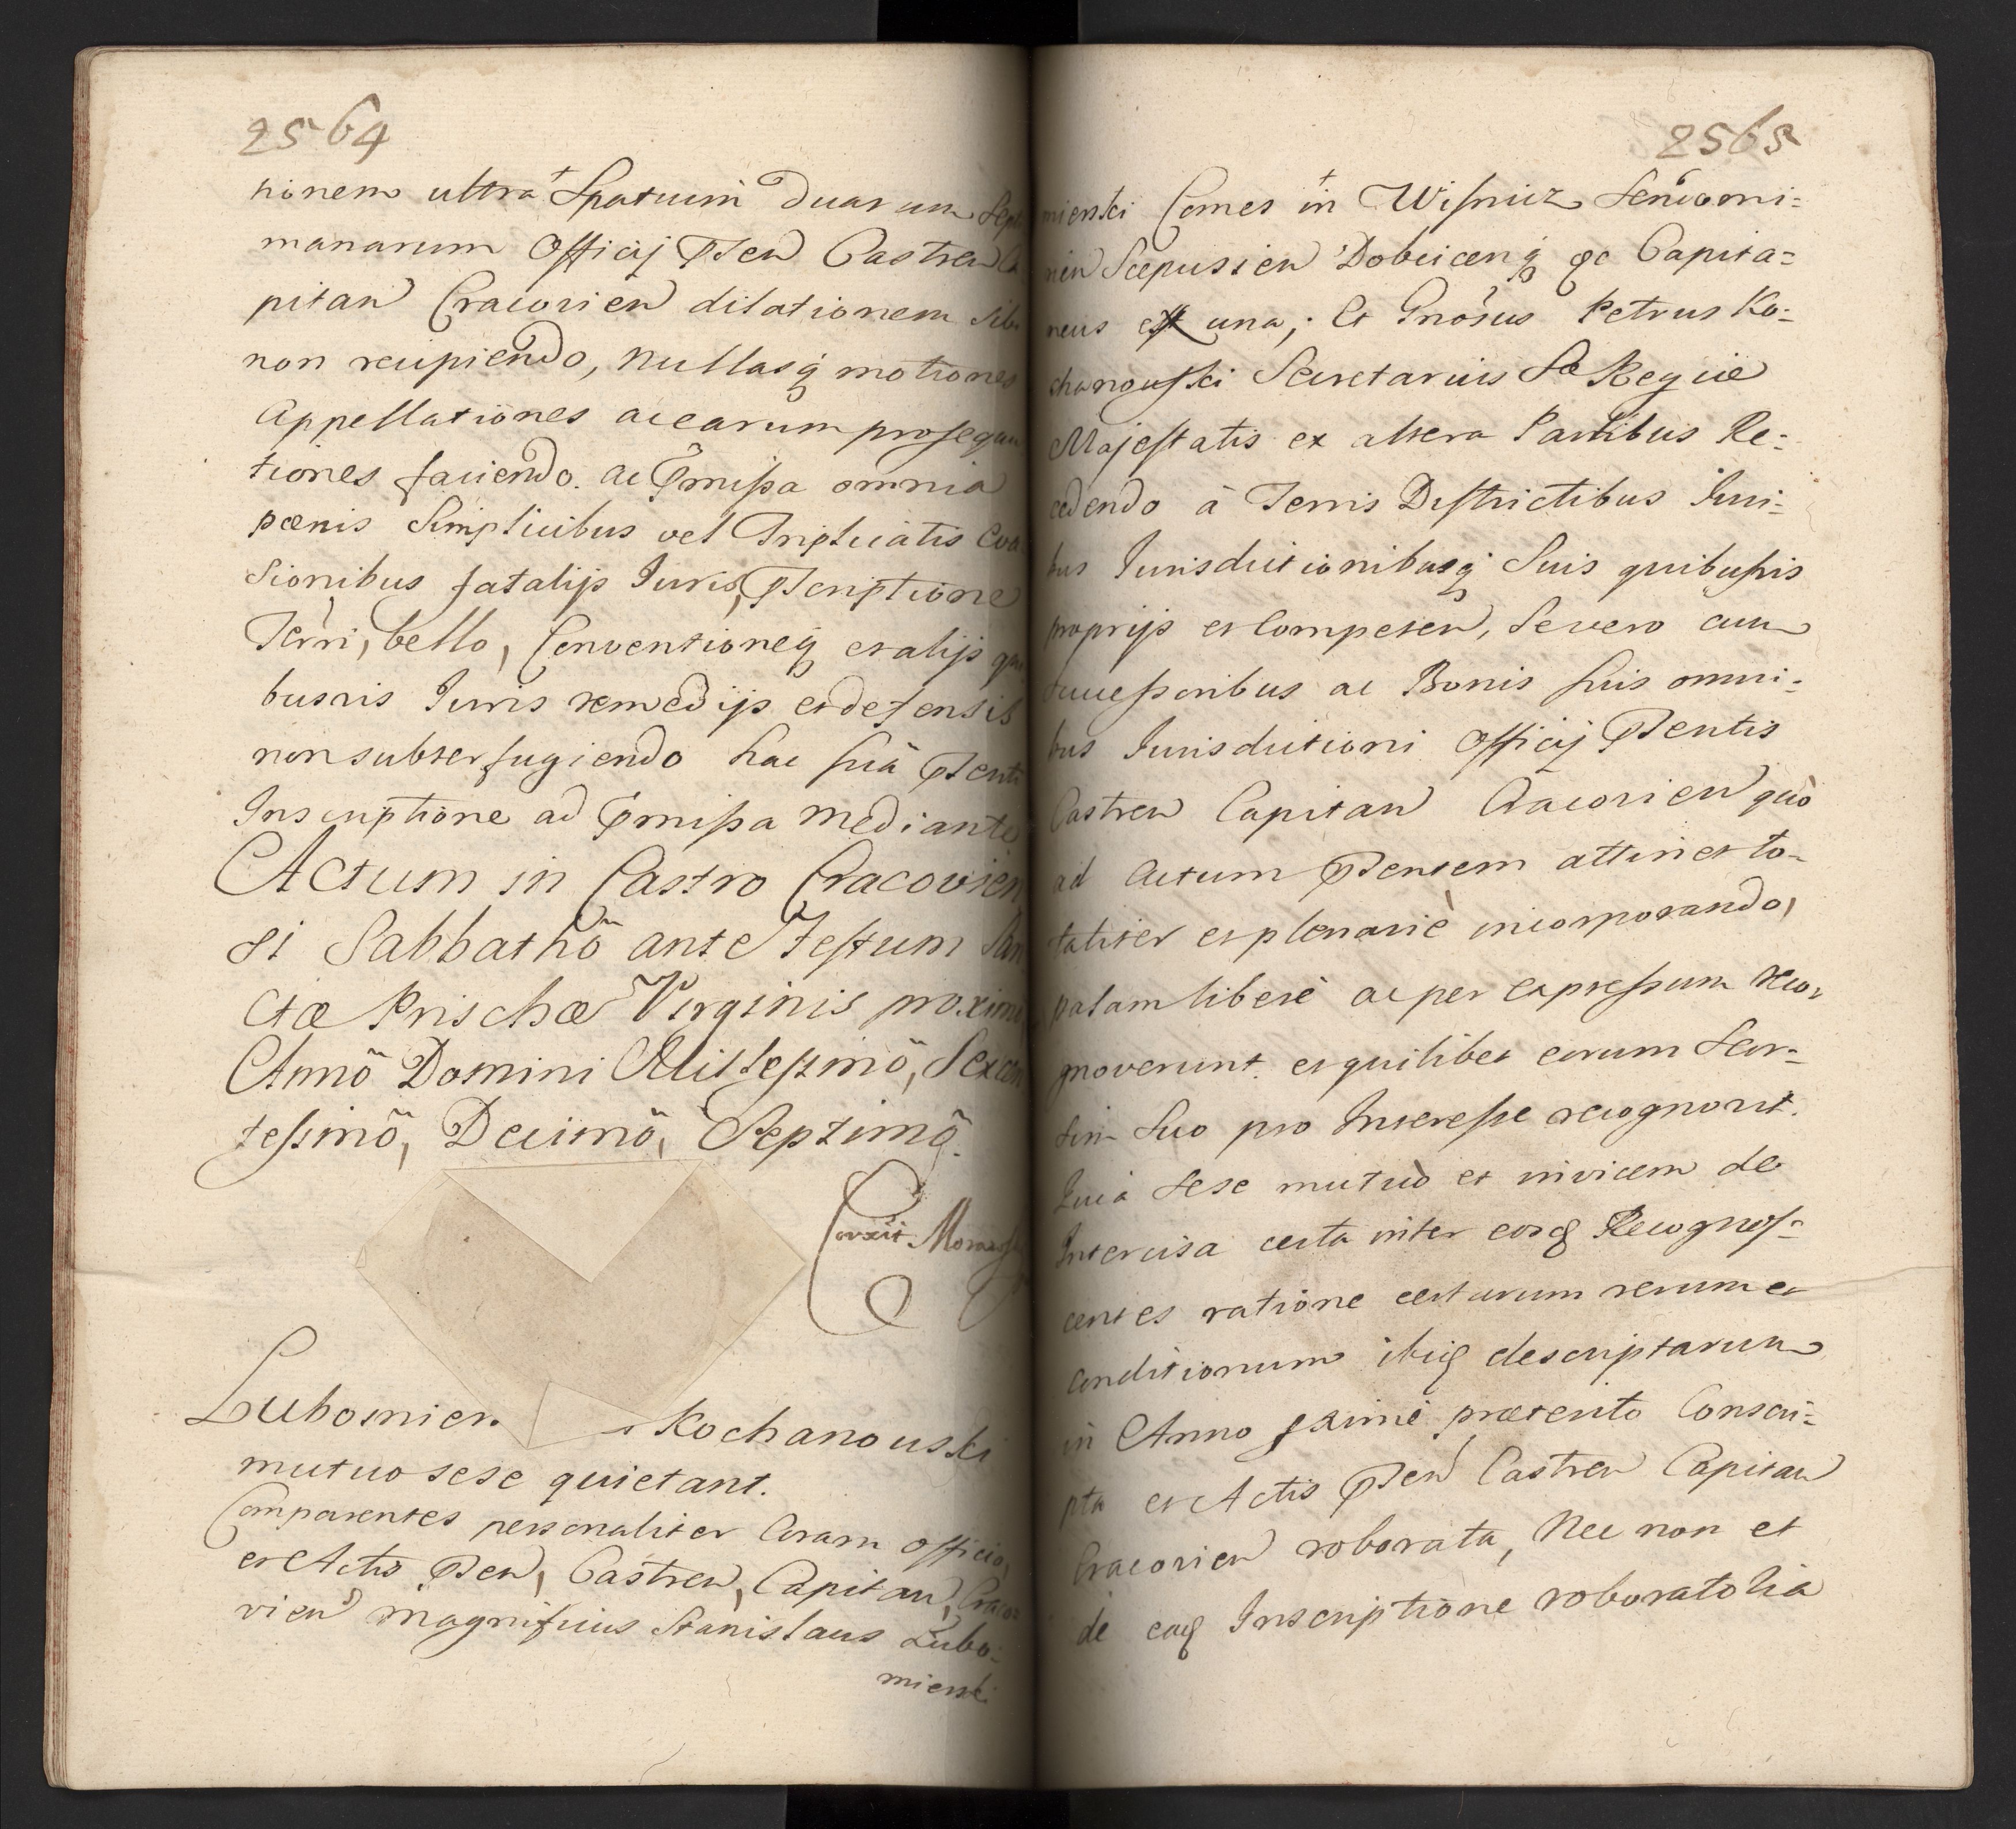 2564
tionem ultra Spatium duarum Sept
manarum Officij Psen Castren Ca
pitan Cracovien dilationem sibi
non recipiendo, nullasq motiones
Appellationes ac earum prosequu
tiones faciendo. ac Pmissa omnia
pœnis Simplicibus vel Triplicatis Eva
sionibus fatalijs Iuris, Pscriptione
Terri, bello, Conventioneq et alijs qui
busvis Iuris remedijs et defensis
non subterfugiendo hac suâ Psenti
Inscriptione ad Pmissa mediante
Actum in Castro Cracovien
si Sabbathō ante Festum San
ctæ Prischæ Virginis proximo
Annō Domini Millessimō, Sexcen
tessimō, Decimō, Septimō.
Corxit Moraws
Lubomier. Kochanouski
mutuo sese quietant.
Comparentes personaliter Coram Officio,
et Actis Psen, Castren, Capitan, Craco
vien Magnificus Stanislaus Lubo-
mierski
2565
mierski Comes in Wisnicz Sendomi-
rien Scepusien Dobcicenq &c Capita-
neus ex una; Et Gnosus Petrus Ko-
chanouski Secretarius Sæ Regiæ
Majestatis ex altera Partibus Re-
cedendo à Terris Districtibus Iuri-
bus Iurisdictionibusq Suis quibusvis
proprijs et Competen, Se vero cum
Successoribus ac Bonis suis omni-
bus Iurisdictioni Officij Psentis
Castren Capitan Cracovien quò
ad Actum Psentem attinet to-
taliter et plenariè incorporando,
palam liberè ac per expressum reco-
gnoverunt. et quilibet eorum Seor-
sim Suo pro Interesse recognovit.
Quia Sese mutuò et invicem de
Intercisa certa inter eosq Recognos-
centes ratione certarum rerum et
Conditionum ibiq descriptarum
in Anno pximè præterito Conscri-
pta et Actis Psen Castren Capitan
Cracovien roborata, Nec non et
de eaq Inscriptione roboratoria